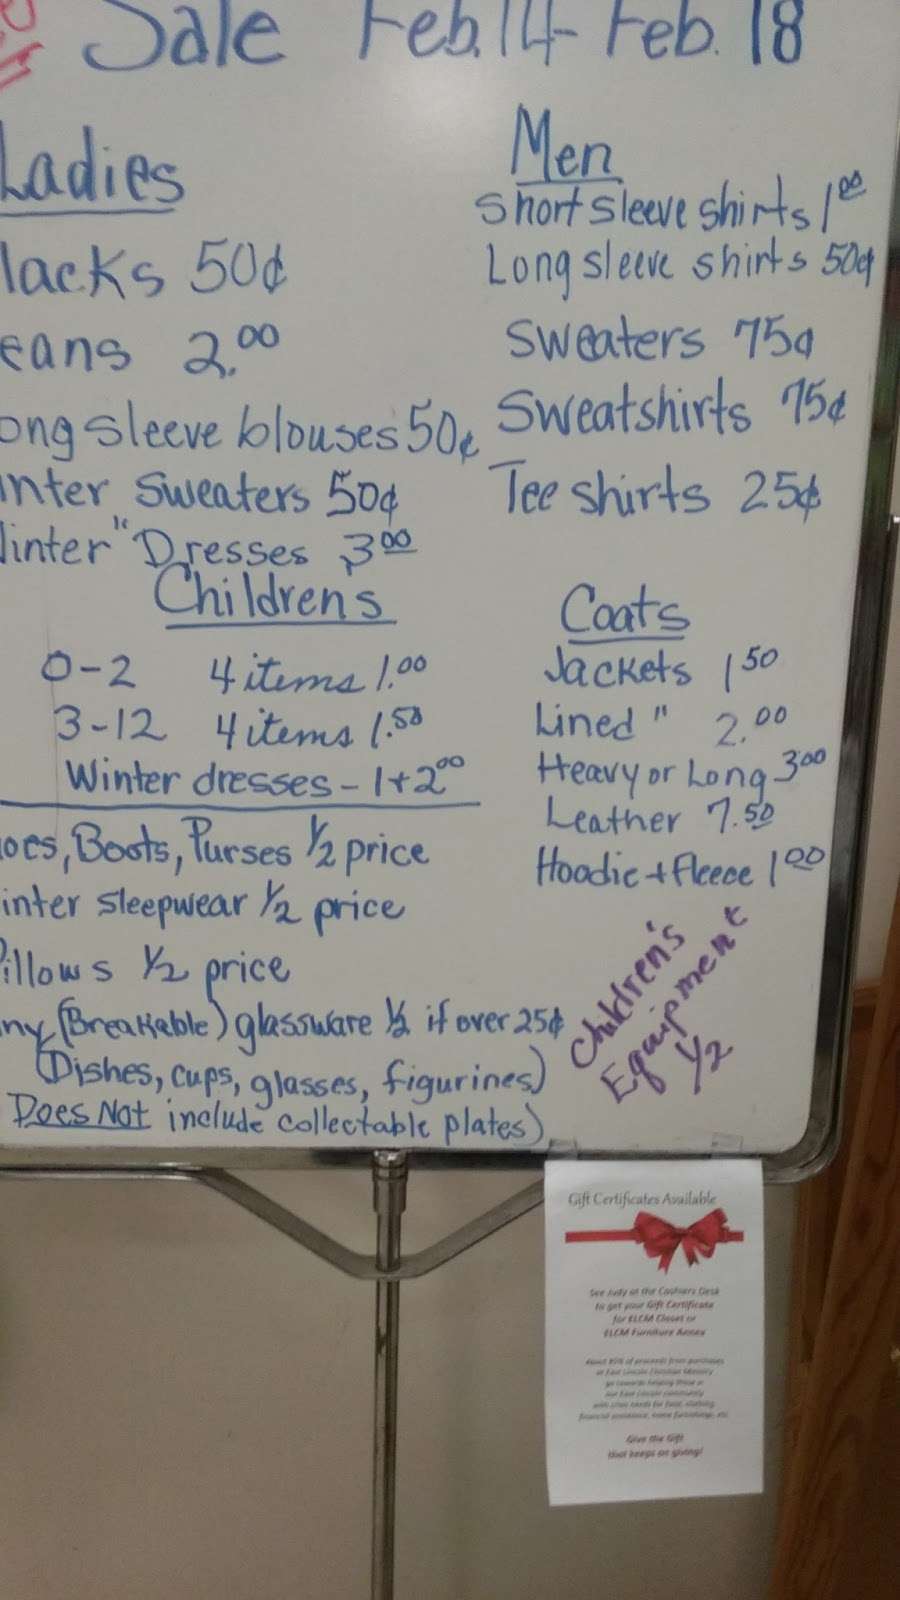 Sale Feb. 14- Feb. 18
Ladies
lacks 50¢
eans 2.00
ong sleeve blouses 50¢
inter Sweaters 50¢
inter " Dresses 3.00
Men
Short sleeve shirts 1 00
Long sleeve shirts 50¢
Sweaters 75¢
Sweatshirts 75¢
Tee shirts 25¢
Childrens
0-2 4 items 1.00
3-12 4 items 1.50
Winter dresses - 1 + 2 00
Coats
Jackets 1 50
Lined " 2.00
Heavy or Long 3 00
Leather 7.50
Hoodie + fleece 1 00
oes, Boots, Purses 1/2 price
inter sleepwear 1/2 price
Pillows 1/2 price
ny (Breakable) glassware 1/2 if over 25¢
(Dishes, cups, glasses, figurines)
Does Not include collectable plates)
Children's
Equipment
1/2
Gift Certificates Available
See Judy at the Cashiers Desk
to get your Gift Certificate
for ELCM Closet or
ELCM Furniture Annex
of proceeds from purchases
at East Lincoln Christian Ministry
go towards helping those in
our East Lincoln community
with crisis needs for food, clothing,
financial assistance, home furnishings, etc.
Give the Gift
that keeps on giving!